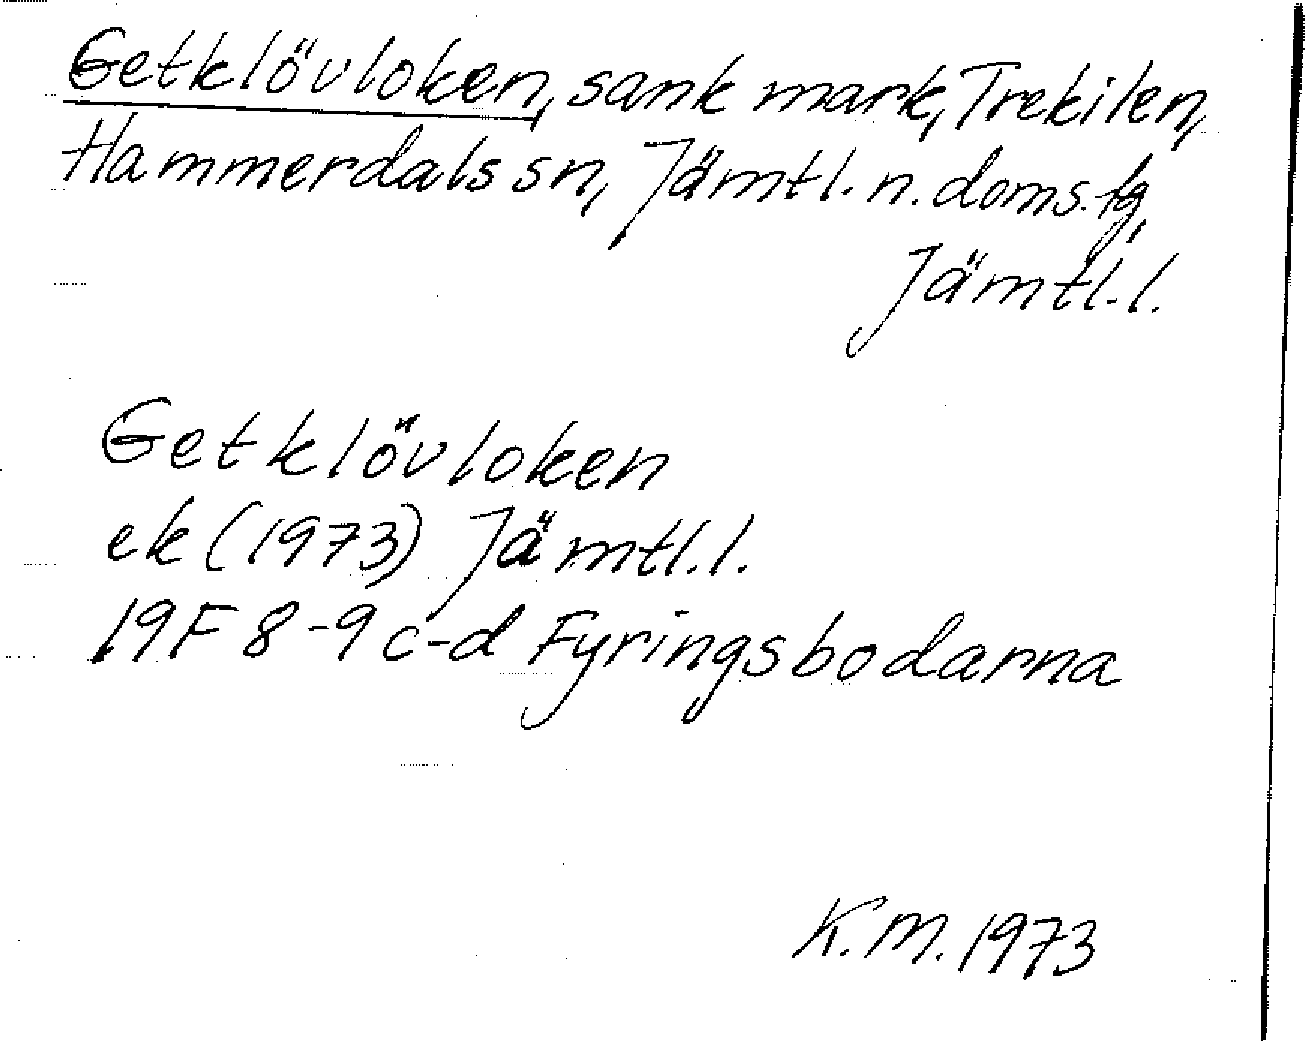 Getklövloken, sank mark, Trekilen,
Hammerdals sn, Jämtl. n. doms. tg,
Jämtl. l.
Getklövloken
ek (1973) Jämtl. l.
19F 8-9 c-d Fyringsbodarna
K.M. 1973